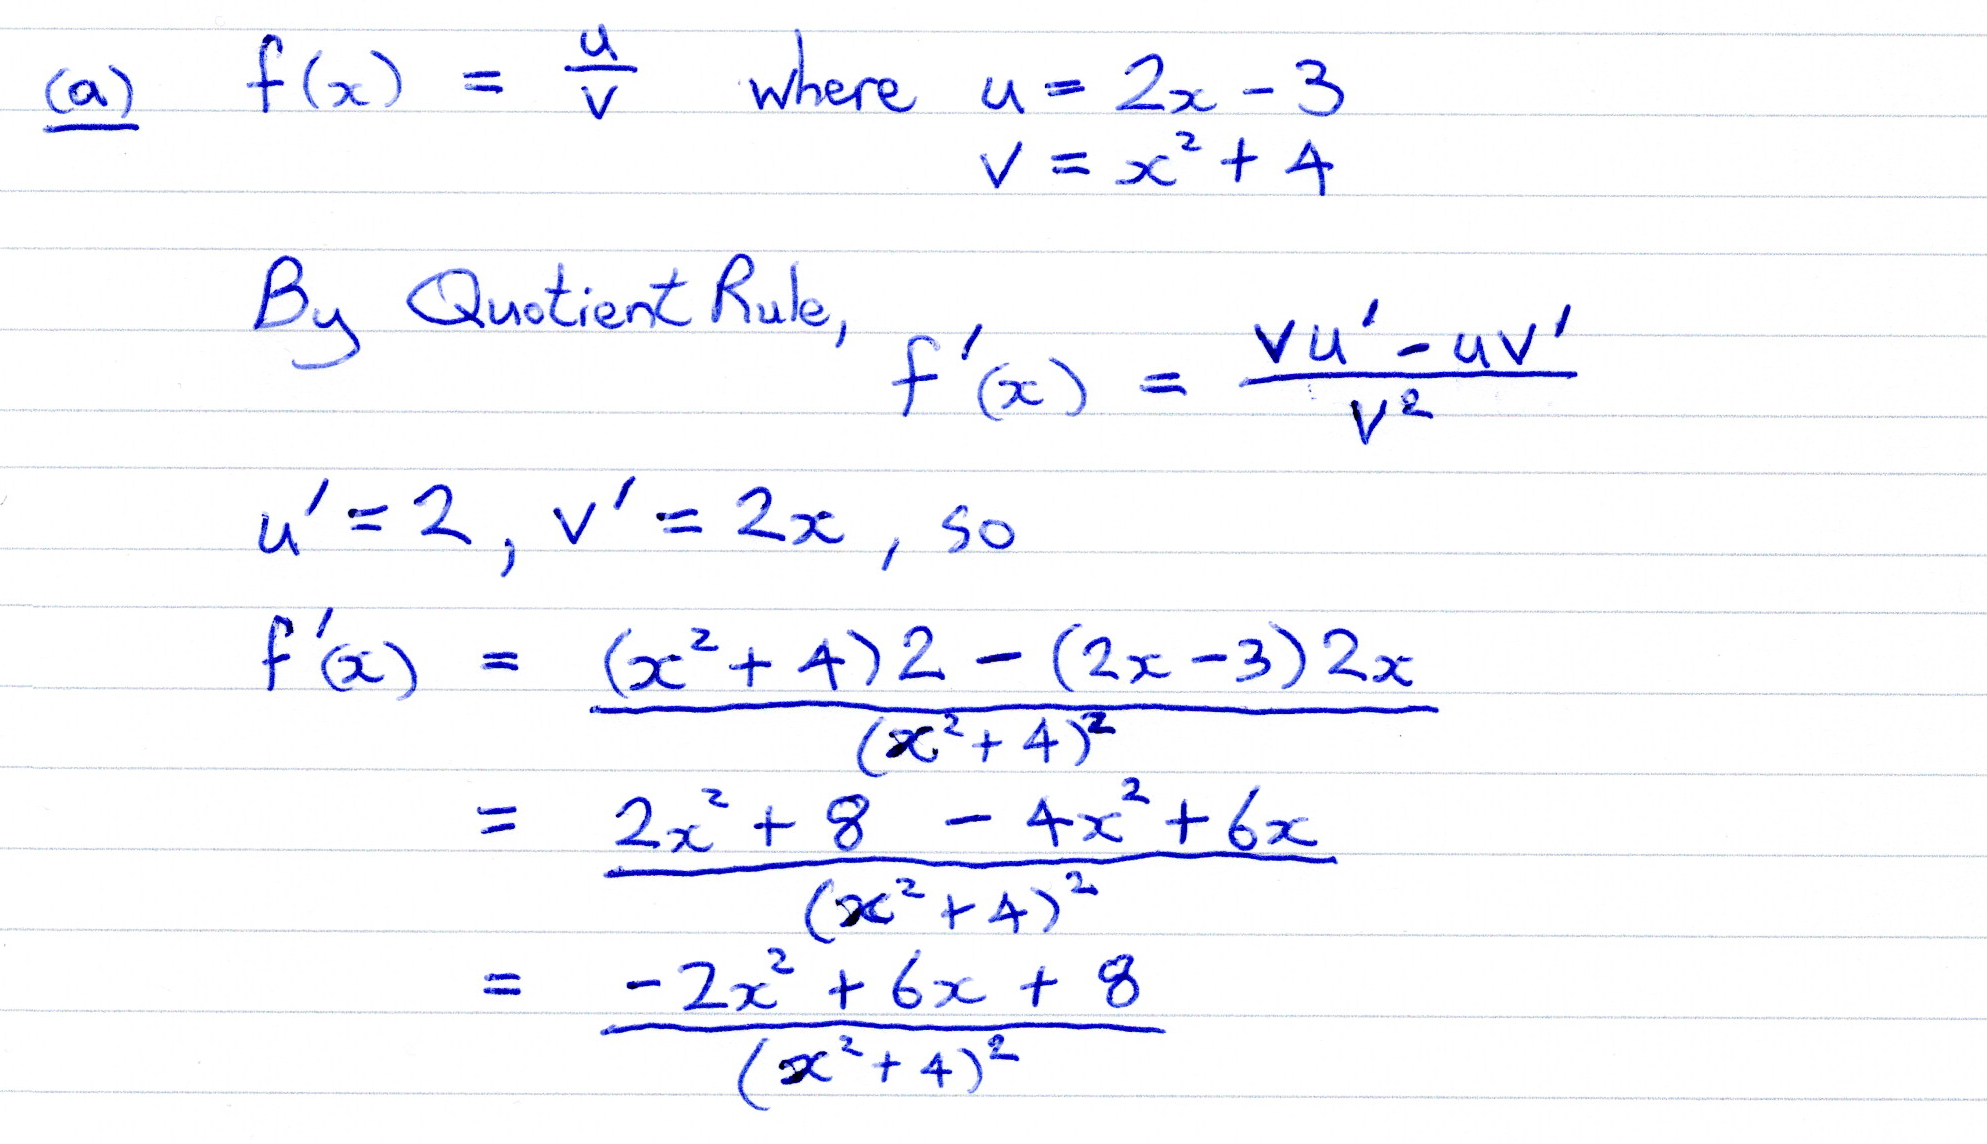 (a) f(x) = u/v where u = 2x - 3
v = x² + 4
By Quotient Rule, f'(x) = (vu' - uv')/v²
u' = 2, v' = 2x, so
f'(x) = ((x² + 4)2 - (2x - 3)2x)/(x² + 4)²
= (2x² + 8 - 4x² + 6x)/(x² + 4)²
= (-2x² + 6x + 8)/(x² + 4)²